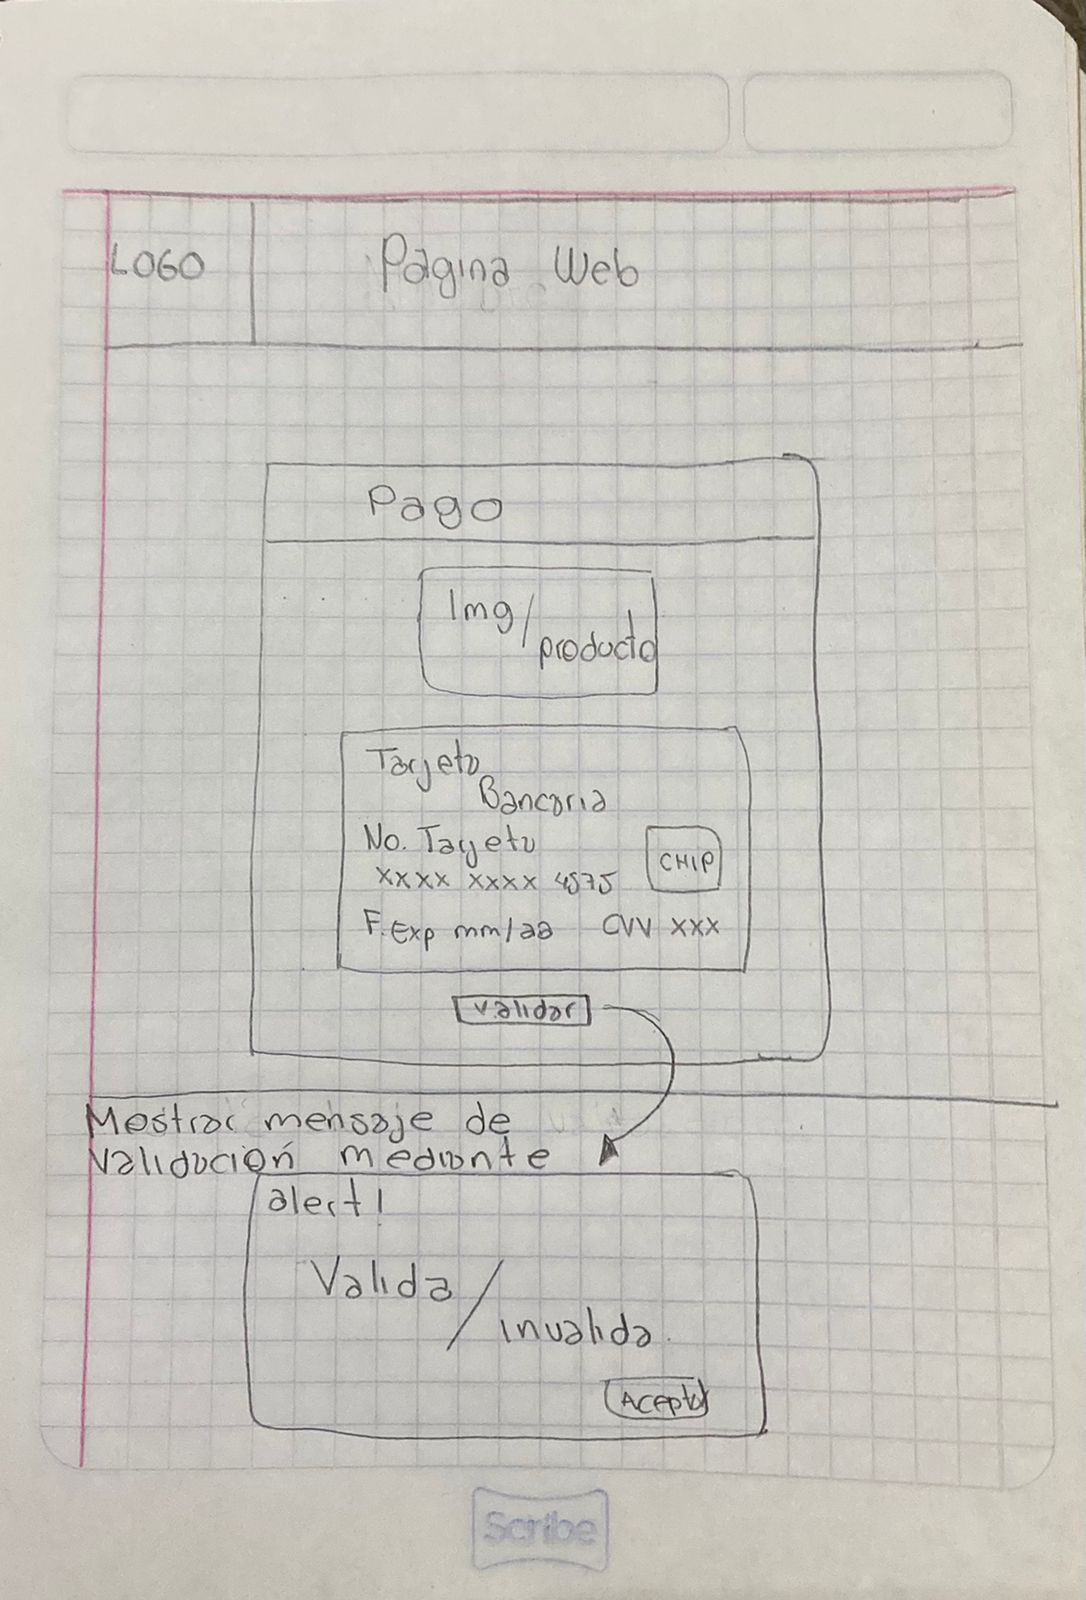 LOGO
Página Web
Pago
Img/
producto
Tarjeta
Bancaria
No. Tarjeta
CHIP
xxxx xxxx 4575
F. Exp mm/aa CVV xxx
validar
Mostrar mensaje de
validación mediante
alert!
Valida/
invalida.
Aceptar
Scribe